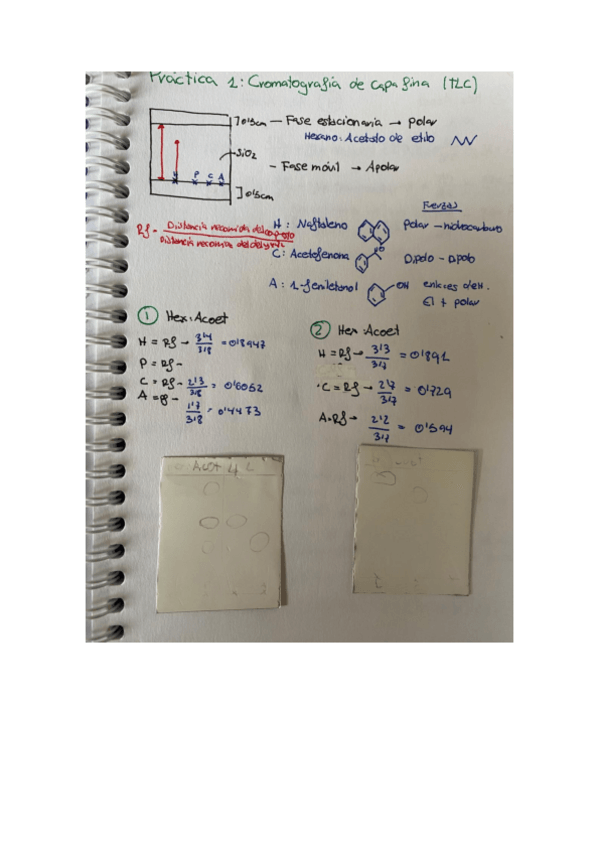 Práctica 1: Cromatografía de capa fina (TLC)
]0'5cm — Fase estacionaria → polar
Hexano: Acetato de etilo
SiO2
— Fase móvil → Apolar
H P C A
]0'5cm
Fuerzas
Rf = Distancia recorrida del compuesto
Distancia recorrida del
H: Naftaleno Polar – hidrocarburo
C: Acetofenona Dipolo – Dipolo
O
A: 1-feniletanol OH enlaces de H.
El + polar
1 Hex:Acoet
H = Rf → 3'4/3'8 = 0'8947
P = Rf →
C = Rf → 2'3/3'8 = 0'6052
A = Rf →
1'7/3'8 = 0'4473
2 Hex:Acoet
H = Rf → 3'3/3'7 = 0'891
C = Rf → 2'7/3'7 = 0'729
A = Rf → 2'2/3'7 = 0'594